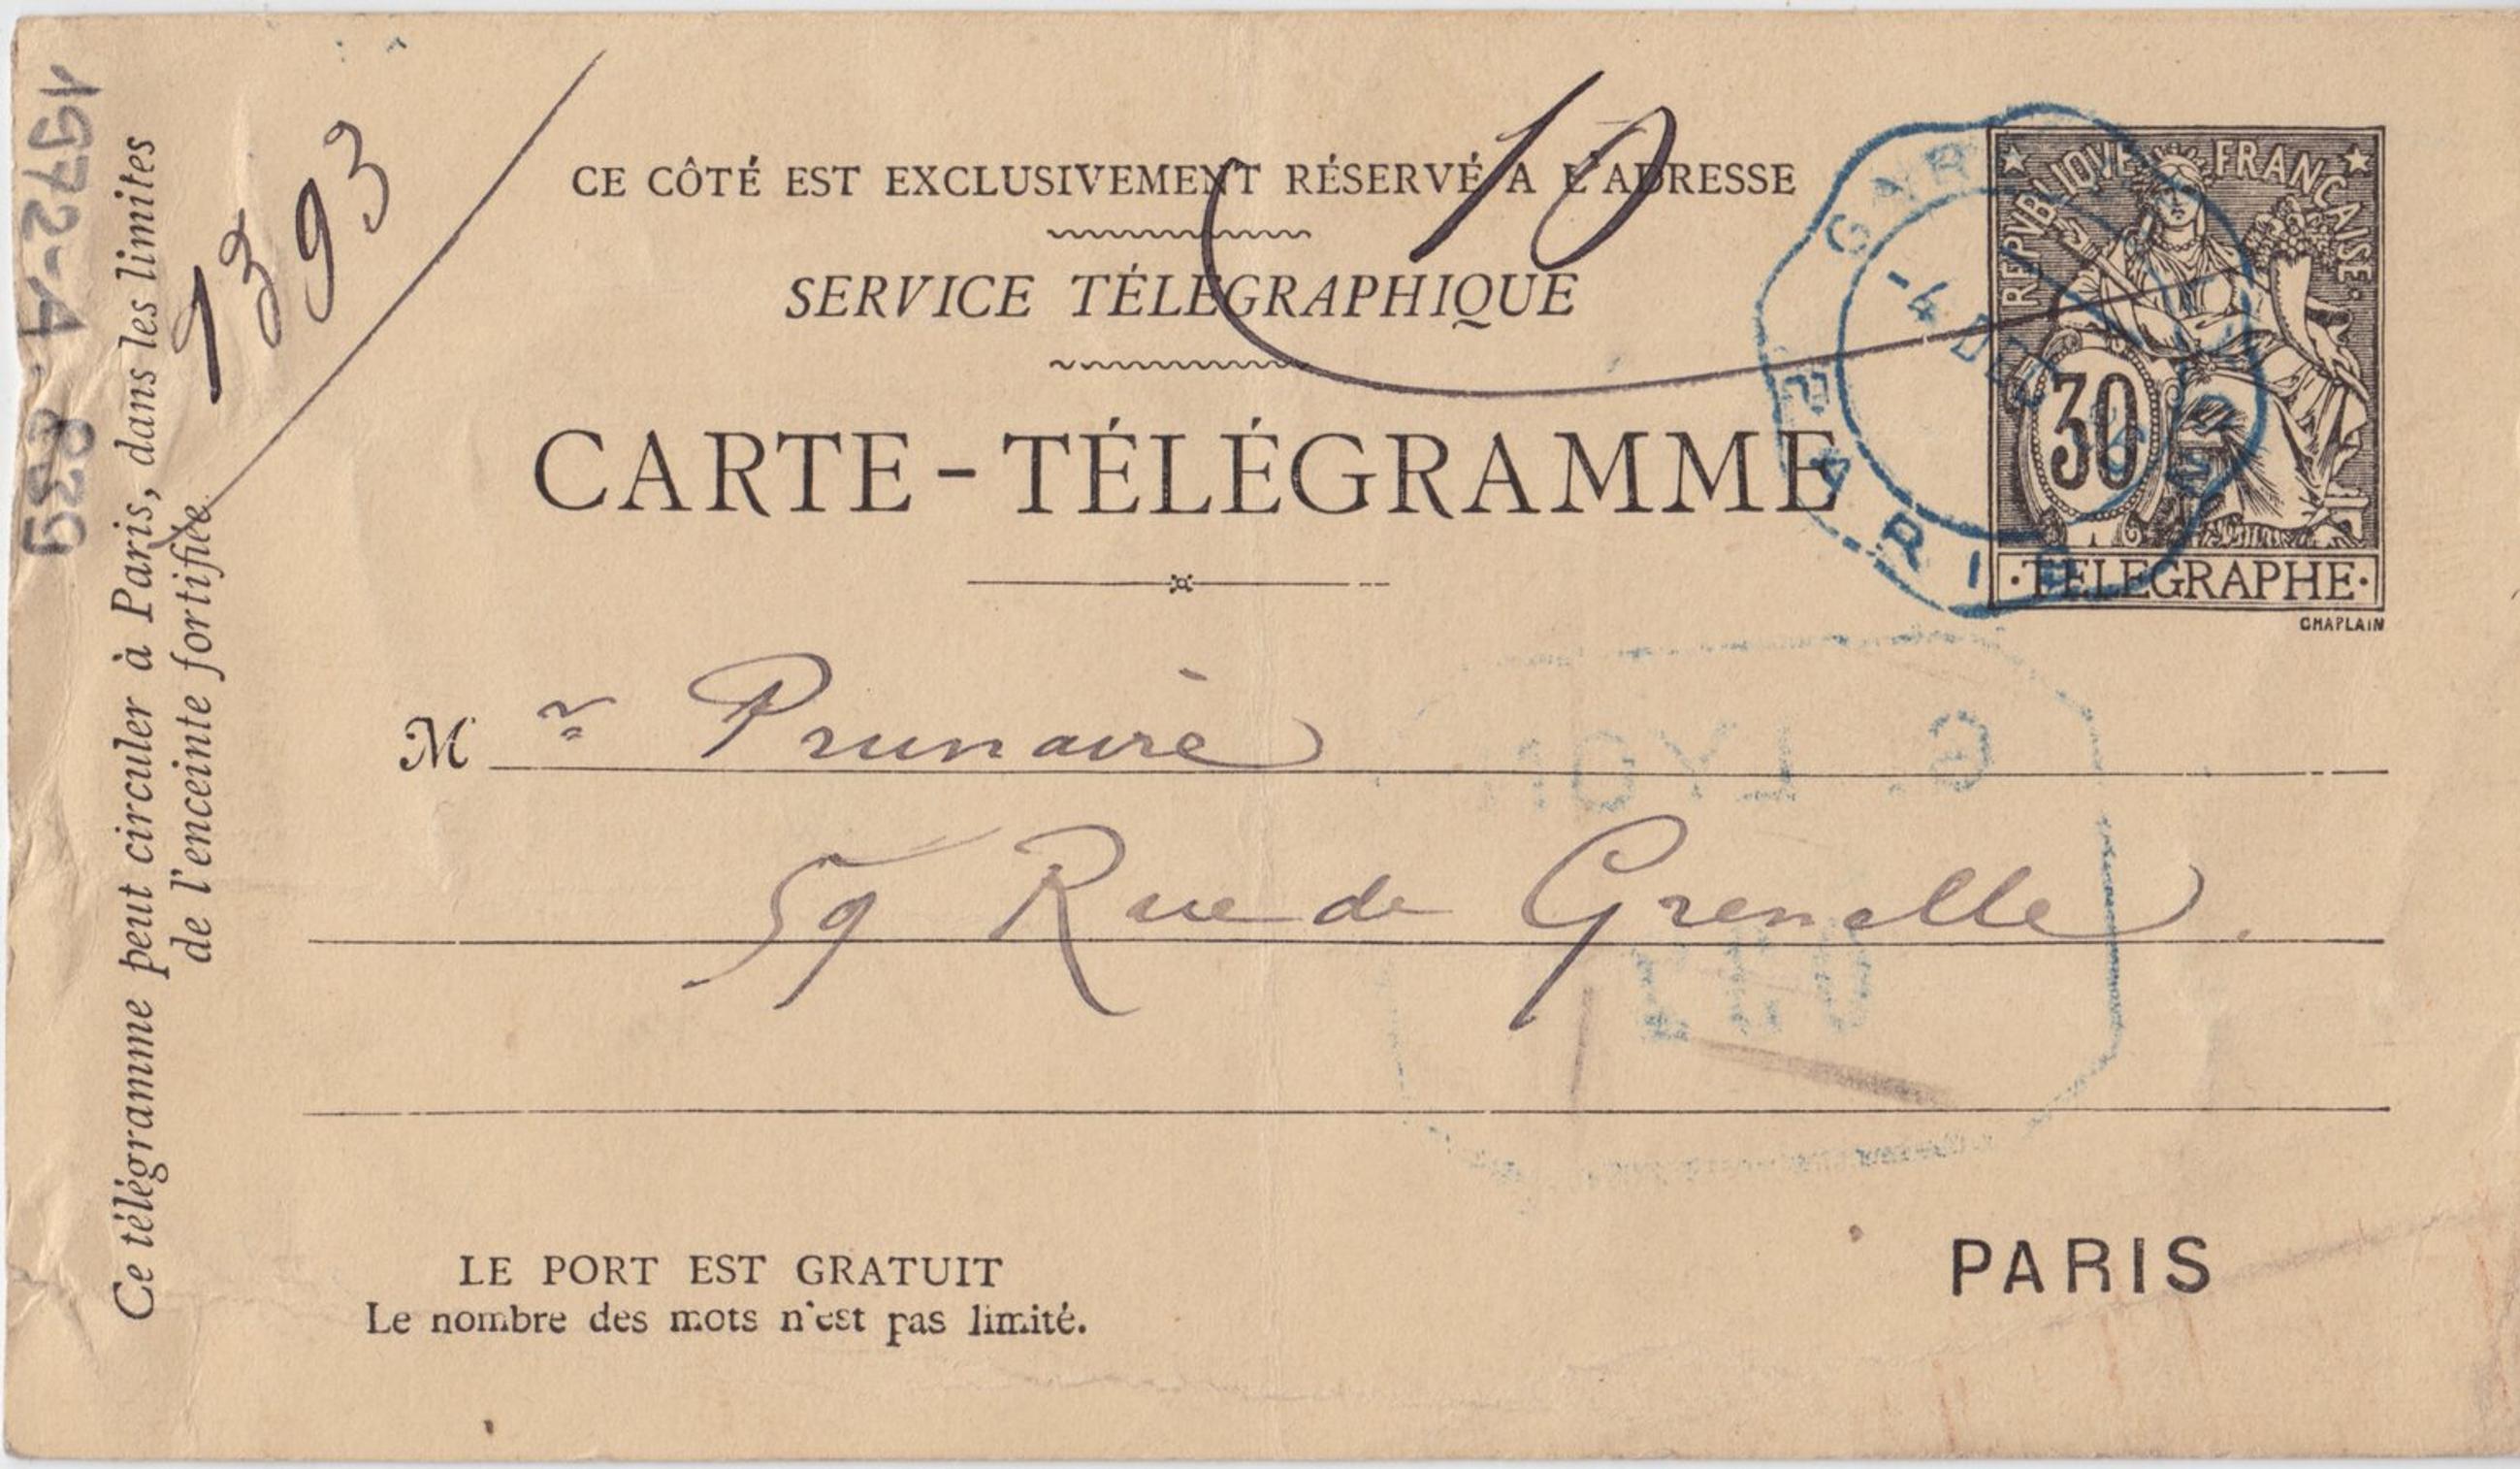 1972-A-839
Ce télégramme peut circuler à Paris, dans les limites
de l'enceinte fortifiée.
1393
10
CE CÔTÉ EST EXCLUSIVEMENT RÉSERVÉ A L'ADRESSE
SERVICE TÉLÉGRAPHIQUE
CARTE-TÉLÉGRAMME
REPVBLIQVE FRANÇAISE
30
·TELEGRAPHE·
CHAPLAIN
-4 DEC
PARIS
Mr Prunaire
59 Rue de Grenelle.
LE PORT EST GRATUIT
Le nombre des mots n'est pas limité.
PARIS